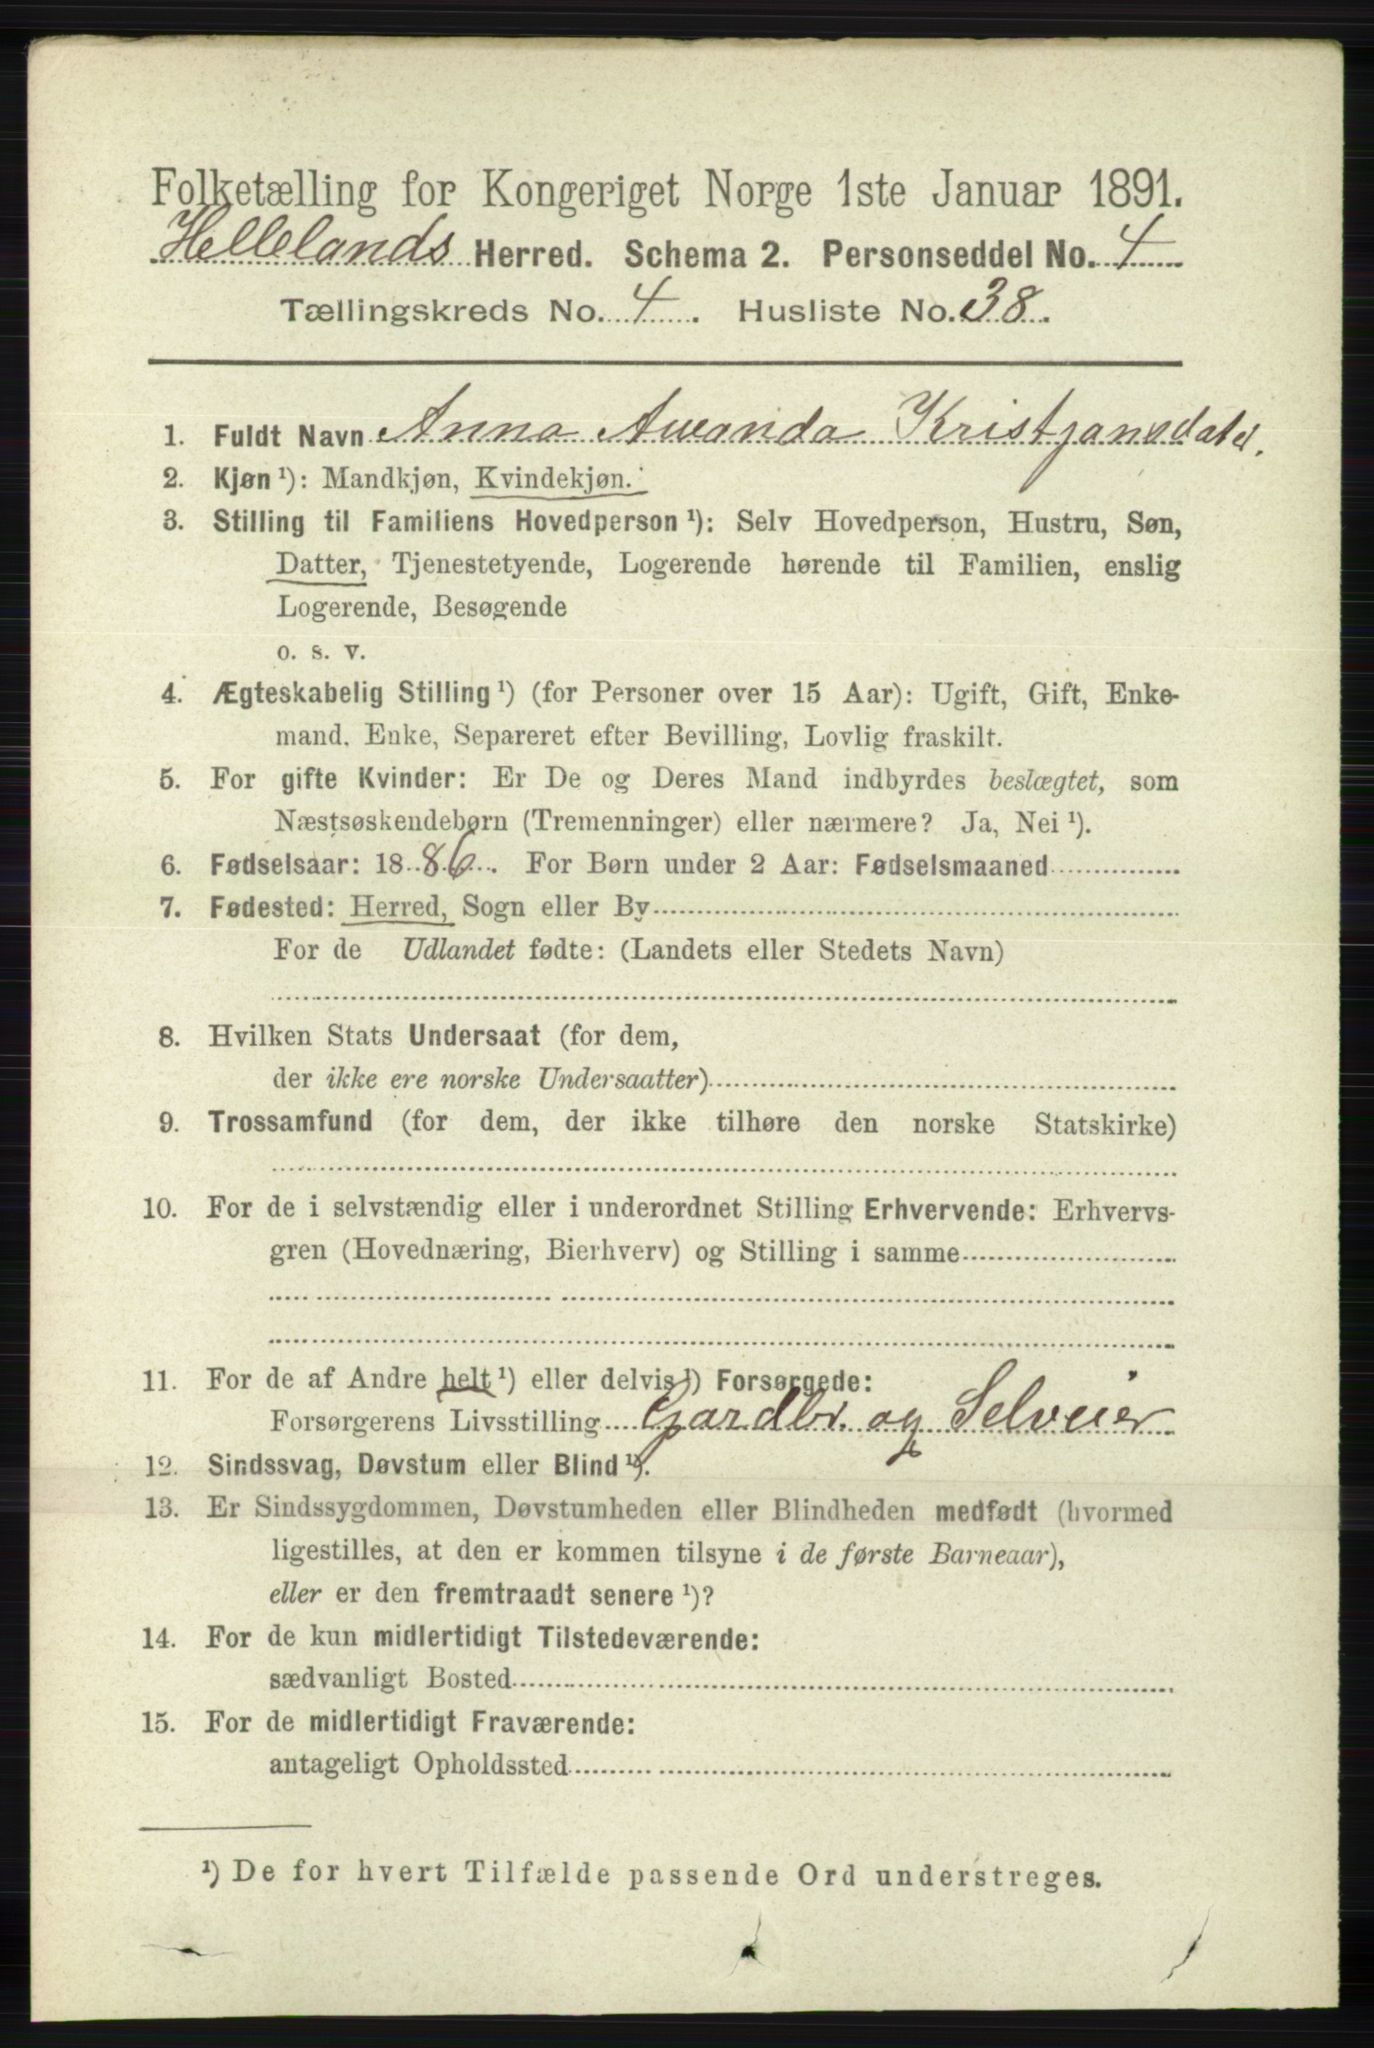 Folketælling for Kongeriget Norge 1ste Januar 1891.
Hellelands Herred. Schema 2. Personseddel No. 4
Tællingskreds No. 4. Husliste No. 38.
1. Fuldt Navn Anna Awanda Kristjansdater.
2. Kjøn ¹): Mandkjøn, Kvindekjøn.
3. Stilling til Familiens Hovedperson ¹): Selv Hovedperson, Hustru, Søn,
Datter, Tjenestetyende, Logerende hørende til Familien, enslig
Logerende, Besøgende
o. s. v.
4. Ægteskabelig Stilling ¹) (for Personer over 15 Aar): Ugift, Gift, Enke-
mand. Enke, Separeret efter Bevilling, Lovlig fraskilt.
5. For gifte Kvinder: Er De og Deres Mand indbyrdes beslægtet, som
Næstsøskendebørn (Tremenninger) eller nærmere? Ja, Nei ¹).
6. Fødselsaar: 1886. For Børn under 2 Aar: Fødselsmaaned
7. Fødested: Herred, Sogn eller By
For de Udlandet fødte: (Landets eller Stedets Navn)
8. Hvilken Stats Undersaat (for dem,
der ikke ere norske Undersaatter)
9. Trossamfund (for dem, der ikke tilhøre den norske Statskirke)
10. For de i selvstændig eller i underordnet Stilling Erhvervende: Erhvervs-
gren (Hovednæring, Bierhverv) og Stilling i samme
11. For de af Andre helt ¹) eller delvis ¹) Forsørgede:
Forsørgerens Livsstilling Gardbr. og Selveier
12. Sindssvag, Døvstum eller Blind ¹).
13. Er Sindssygdommen, Døvstumheden eller Blindheden medfødt (hvormed
ligestilles, at den er kommen tilsyne i de første Barneaar),
eller er den fremtraadt senere ¹)?
14. For de kun midlertidigt Tilstedeværende:
sædvanligt Bosted
15. For de midlertidigt Fraværende:
antageligt Opholdssted
¹) De for hvert Tilfælde passende Ord understreges.